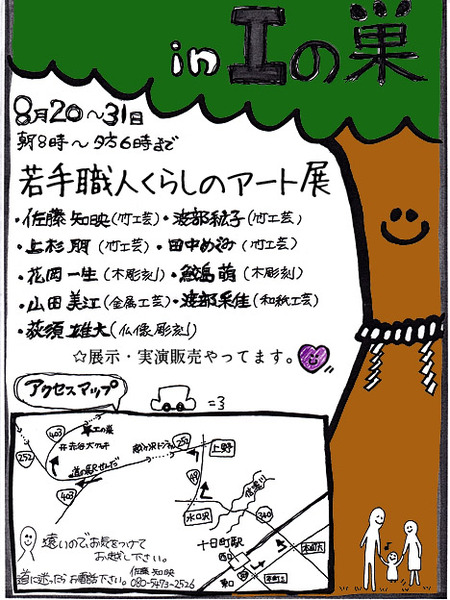 in 工の巣
8月20～31日
朝8時～夕方6時まで
若手職人くらしのアート展
・佐藤 知映(竹工芸)・渡部 紘子(竹工芸)
・上杉 朋(竹工芸)・田中めぐみ(竹工芸)
・花岡一生(木彫刻)・鮫島 萌(木彫刻)
・山田 美江(金属工芸)・渡部 采佳(和紙工芸)
・荻須 雄大(仏像彫刻)
☆展示・実演販売やってます。
アクセスマップ
=3
403
工の巣
252
252
上野
道の駅せんだ
403
49
水口沢
信濃川
240
十日町駅
西口
東口
本町六
本町三
遠いのでお気をつけて
お越し下さい。
道に迷ったらお電話下さい。
佐藤 知映
080-5473-2526